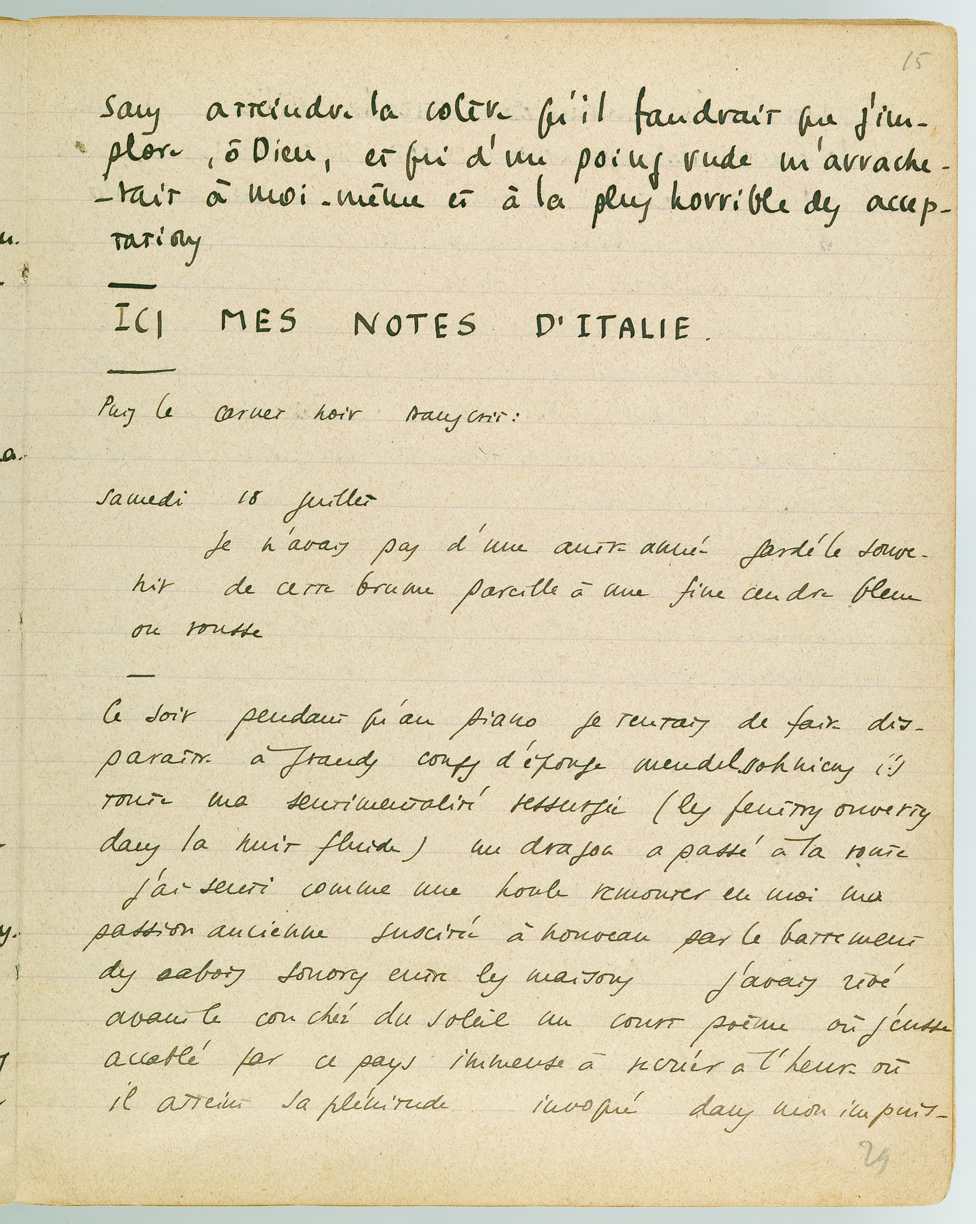 15
sans atteindre la colère qu'il faudrait que j'im-
plore, ô Dieu, et qui d'un poing rude m'arrache-
-rait à moi-même et à la plus horrible des accep-
tations
ICI MES NOTES D'ITALIE.
Puis le carnet noir transcrit :
Samedi 18 juillet
Je n'avais pas d'une autre année gardé le souve-
nir de cette brume pareille à une fine cendre bleue
ou rousse
Ce soir pendant qu'au piano je tentais de faire dis-
paraitre à grands coups d'éponge mendelsohniens (!)
toute ma sentimentalité ressurgie (les fenêtres ouvertes
dans la nuit fluide) un dragon a passé à la route
j'ai senti comme une houle remonter en moi ma
passion ancienne suscitée à nouveau par le battement
des sabots sonores entre les maisons j'avais rêvé
avant le couché du soleil un court poème où j'eusse
accablé par ce pays immense à recréer à l'heure où
il atteint sa plénitude invoqué dans mon impuis-
29